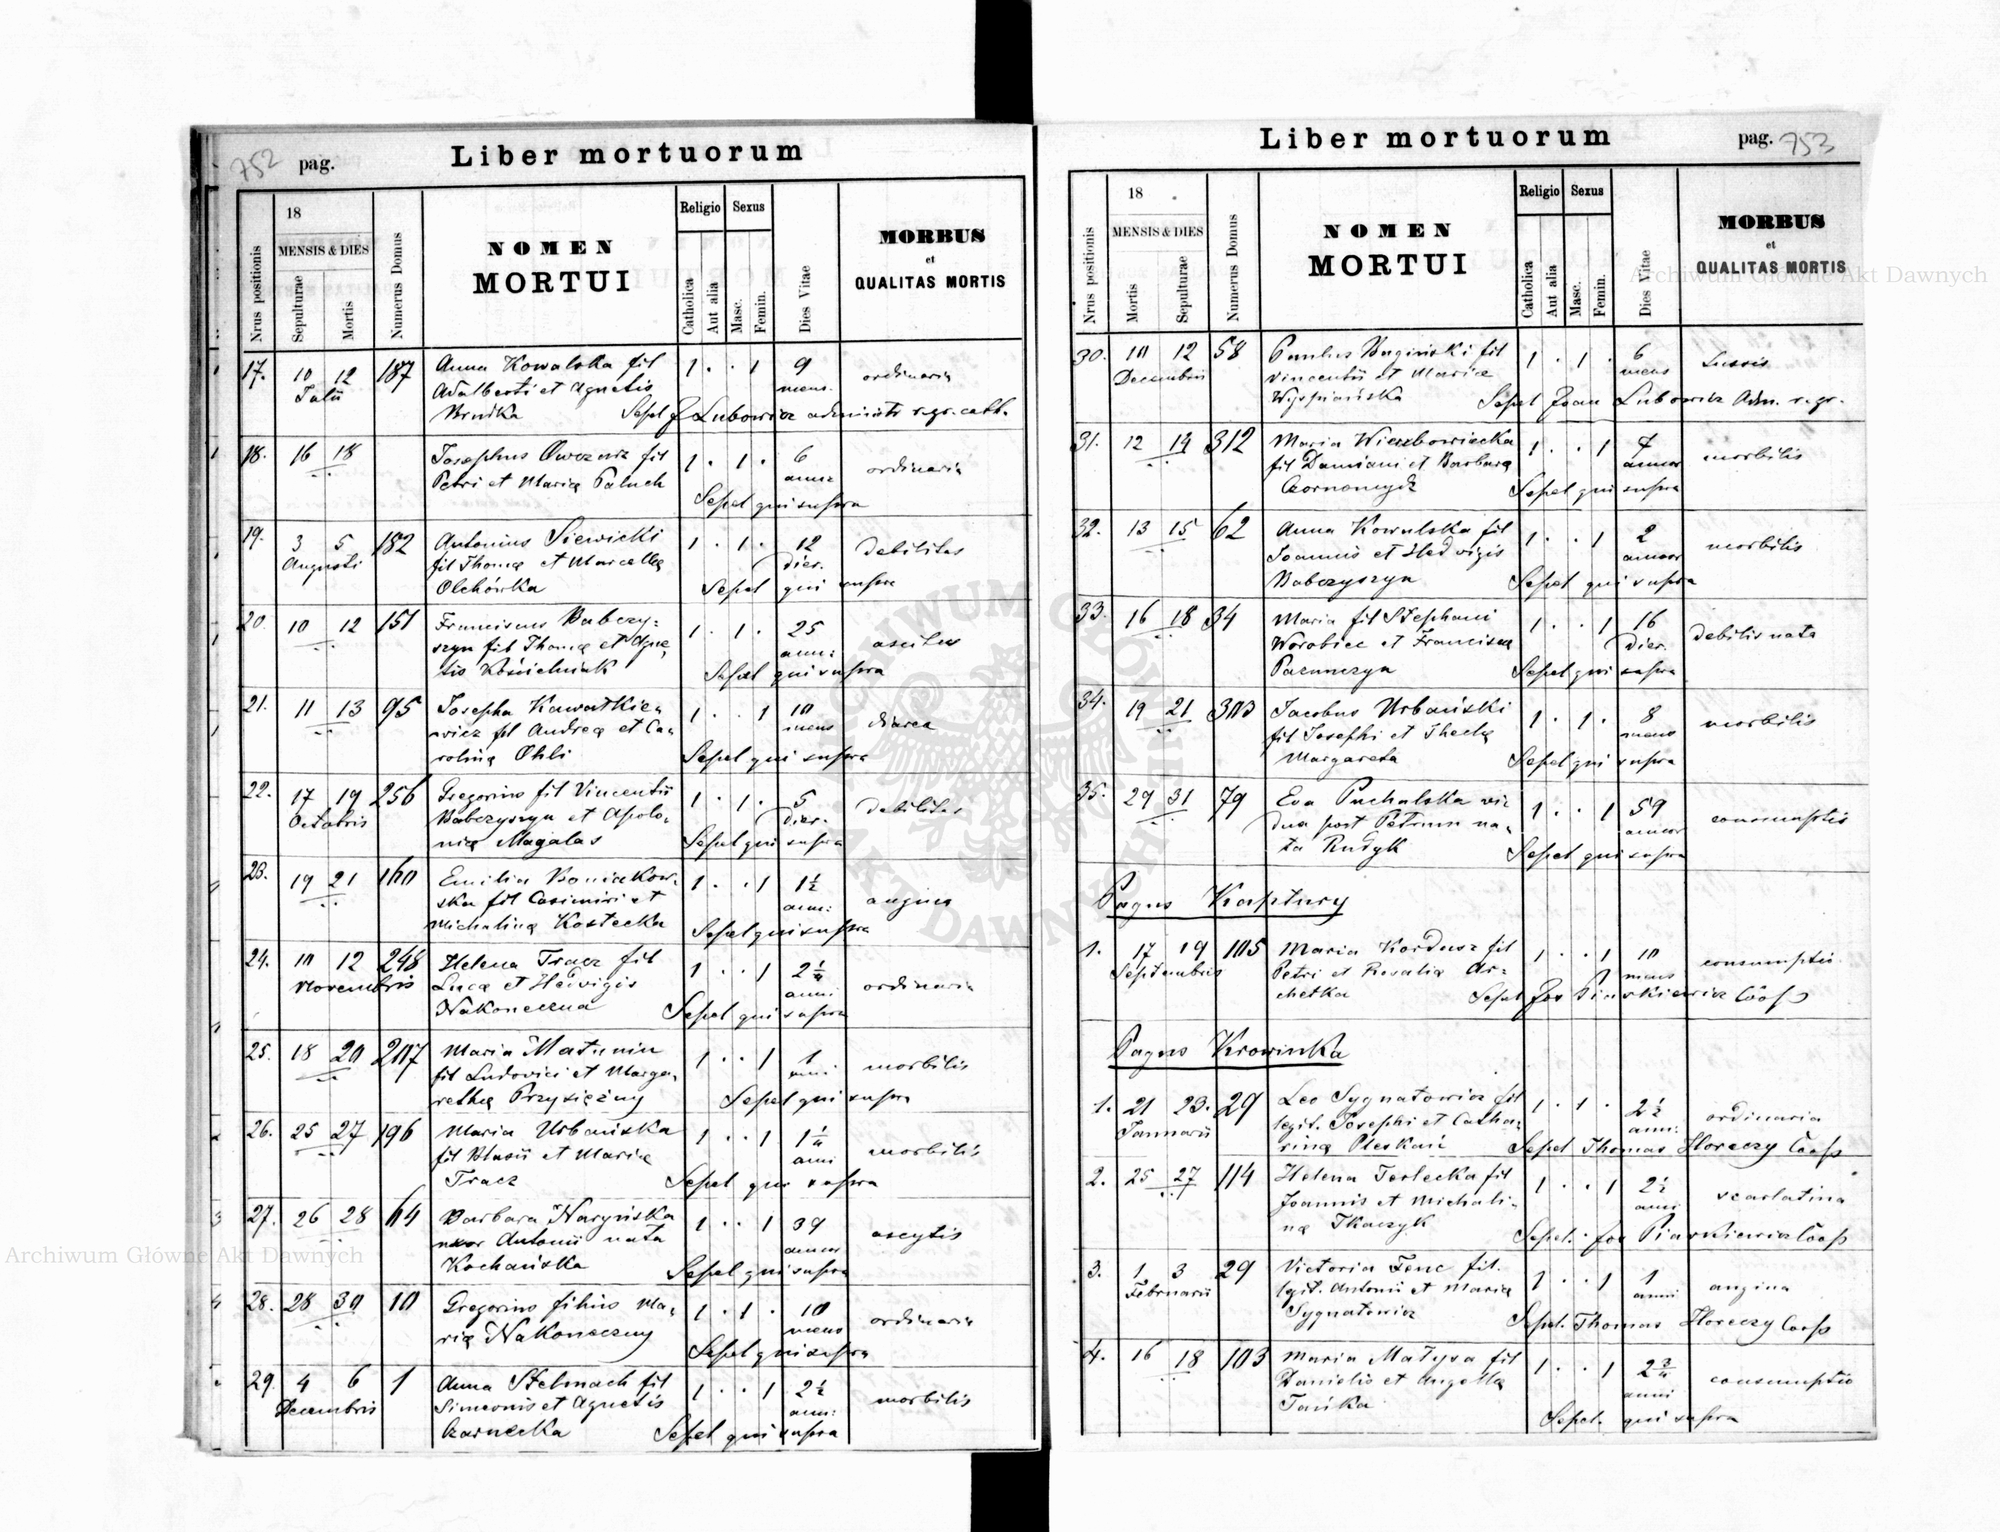 752 pag. Liber mortuorum
Nrus positionis
18
MENSIS & DIES
Sepulturae
Mortis
Numerus Domus
NOMEN
MORTUI
Religio
Catholica
Aut alia
Sexus
Masc.
Femin.
Dies Vitae
MORBUS
et
QUALITAS MORTIS
17. 10 12 187 Anna Kowalska fil 1 . . 1 9 ordinaria
Julii Adalberti et Agnetis mens.
Sepel J Lubowicz administr r. gr. cath.
18. 16 18 Josephus Owczarz fil 1 . 1 . 6 ordinaria
Petri et Mariæ Paluch
Sepel qui supra
19. 3 5 182 Antonius Siewicki 1 . 1 . 12 debilitas
Augusti fil Thomæ et Marcellæ dier.
Olchówka Sepel qui supra
20. 10 12 151 Franciscus Babczy= 1 . 1 . 25 ascites
szyn fil Thomæ et Agne,
tis Kościelniak Sepel qui supra
21. 11 13 95 Josepha Kawałkie, 1 . . 1 10 diarea
wicz fil Andreæ et Ca, mens
rolinæ Ohli Sepel qui supra
22. 17 19 256 Gregorius fil Vincentii 1 . 1 . 5 debilitas
Octobris Babczyszyn et Apolo, dier.
niæ Magalas Sepel qui supra
23. 19 21 160 Emilia Boniakow, 1 . . 1 1½ angina
ska fil Casimiri et
Michalinæ Kostecka Sepel qui supra
24. 10 12 248 Helena Tracz fil 1 . . 1 2¼ ordinaria
Novembris Lucæ et Hedvigis anni
Nakoneczna Sepel qui supra
25. 18 20 207 Maria 1 . . 1 1 morbilis
fil Ludovici et Marga,
rethæ Przysiężny Sepel qui supra
26. 25 27 196 Maria Urbańska 1 . . 1 1¼ morbilis
fil Blasii et Mariæ
Tracz Sepel qui supra
27. 26 28 64 Barbara Naryńska 1 . . 1 39 ascytis
uxor Antonii nata
Kochańska Sepel qui supra
28. 28 30 10 Gregorius filius Ma, 1 . 1 . 10 ordinaria
riæ Nakoneczny mens
Sepel qui supra
29. 4 6 1 Anna Stelmach fil 1 . . 1 2½ morbilis
Decembris Simeonis et Agnetis
Czarnecka Sepel qui supra
Liber mortuorum pag. 753
Nrus positionis
18
MENSIS & DIES
Mortis
Sepulturae
Numerus Domus
NOMEN
MORTUI
Religio
Catholica
Aut alia
Sexus
Masc.
Femin.
Dies Vitae
MORBUS
et
QUALITAS MORTIS
30. 10 12 58 Paulus Baginski fil 1 . 1 . 6 tussis
Decembris Vincentii et Mariæ mens
Wyspiańska Sepel Joan Lubowicz Adm. r. gr.
31. 12 14 312 Maria Wierzbowiecka 1 . . 1 4 morbilis
fil Damiani et Barbaræ annor
Czornomydz Sepel qui supra
32. 13 15 62 Anna Kowalska fil 1 . . 1 2 morbilis
Joannis et Hedvigis annor
Babczyszyn Sepel qui supra
33. 16 18 34 Maria fil Stephani 1 . . 1 16 debilis nata
Worobiec et Franciscæ dier.
Sepel qui supra
34. 19 21 303 Jacobus Urbański 1 . 1 . 8 morbilis
fil Josephi et Theclæ mens
Margareta Sepel qui supra
35. 29 31 79 Eva Puchalska vi, 1 . . 1 59 consumptis
dua post Petrum na, annor
ta Rudyk Sepel qui supra
Pagus Kaptury
1. 17 19 105 Maria Kordusz fil 1 . . 1 10 consumptio
Septembris Petri et Rosaliæ Ar= mens
chetka Sepel Jos Piaskiewicz Coop
Pagus Krowinka
1. 21 23. 29 Leo Sygnatowicz fil 1 . 1 . 2½ ordinaria
Januarii legit. Josephi et Catha,
rinæ Pleskań Sepel. Thomas Horeczy Coop
2. 25 27 114 Helena Terlecka fil 1 . . 1 2½ scarlatina
Joannis et Michali,
næ Tkaczyk Sepel. Jos Piaskiewicz Coop
3. 1 3 29 Victoria Fenc fil. 1 . . 1 1 angina
Februarii legit. Antonii et Mariæ anni
Sygnatowicz Sepel. Thomas Horeczy Coop
4. 16 18 103 Maria Matysa fil 1 . . 1 2¾ consumptio
Danielis et Angellæ anni
Tańka Sepel. qui supra
Archiwum Główne Akt Dawnych
Archiwum Główne Akt Dawnych
ARCHIWUM GŁÓWNE AKT DAWNYCH